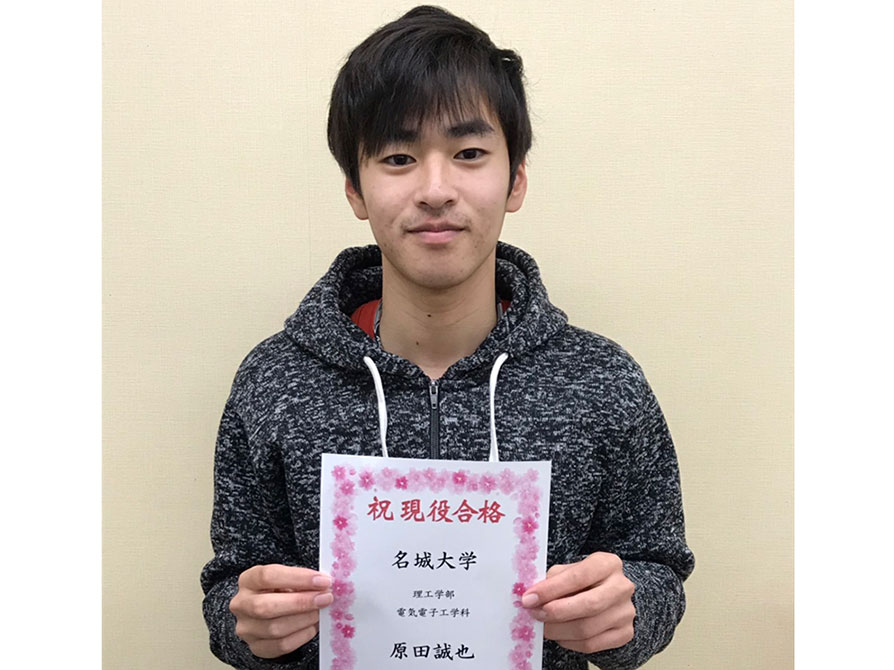 祝 現役合格
名城大学
理工学部
電気電子工学科
原田誠也